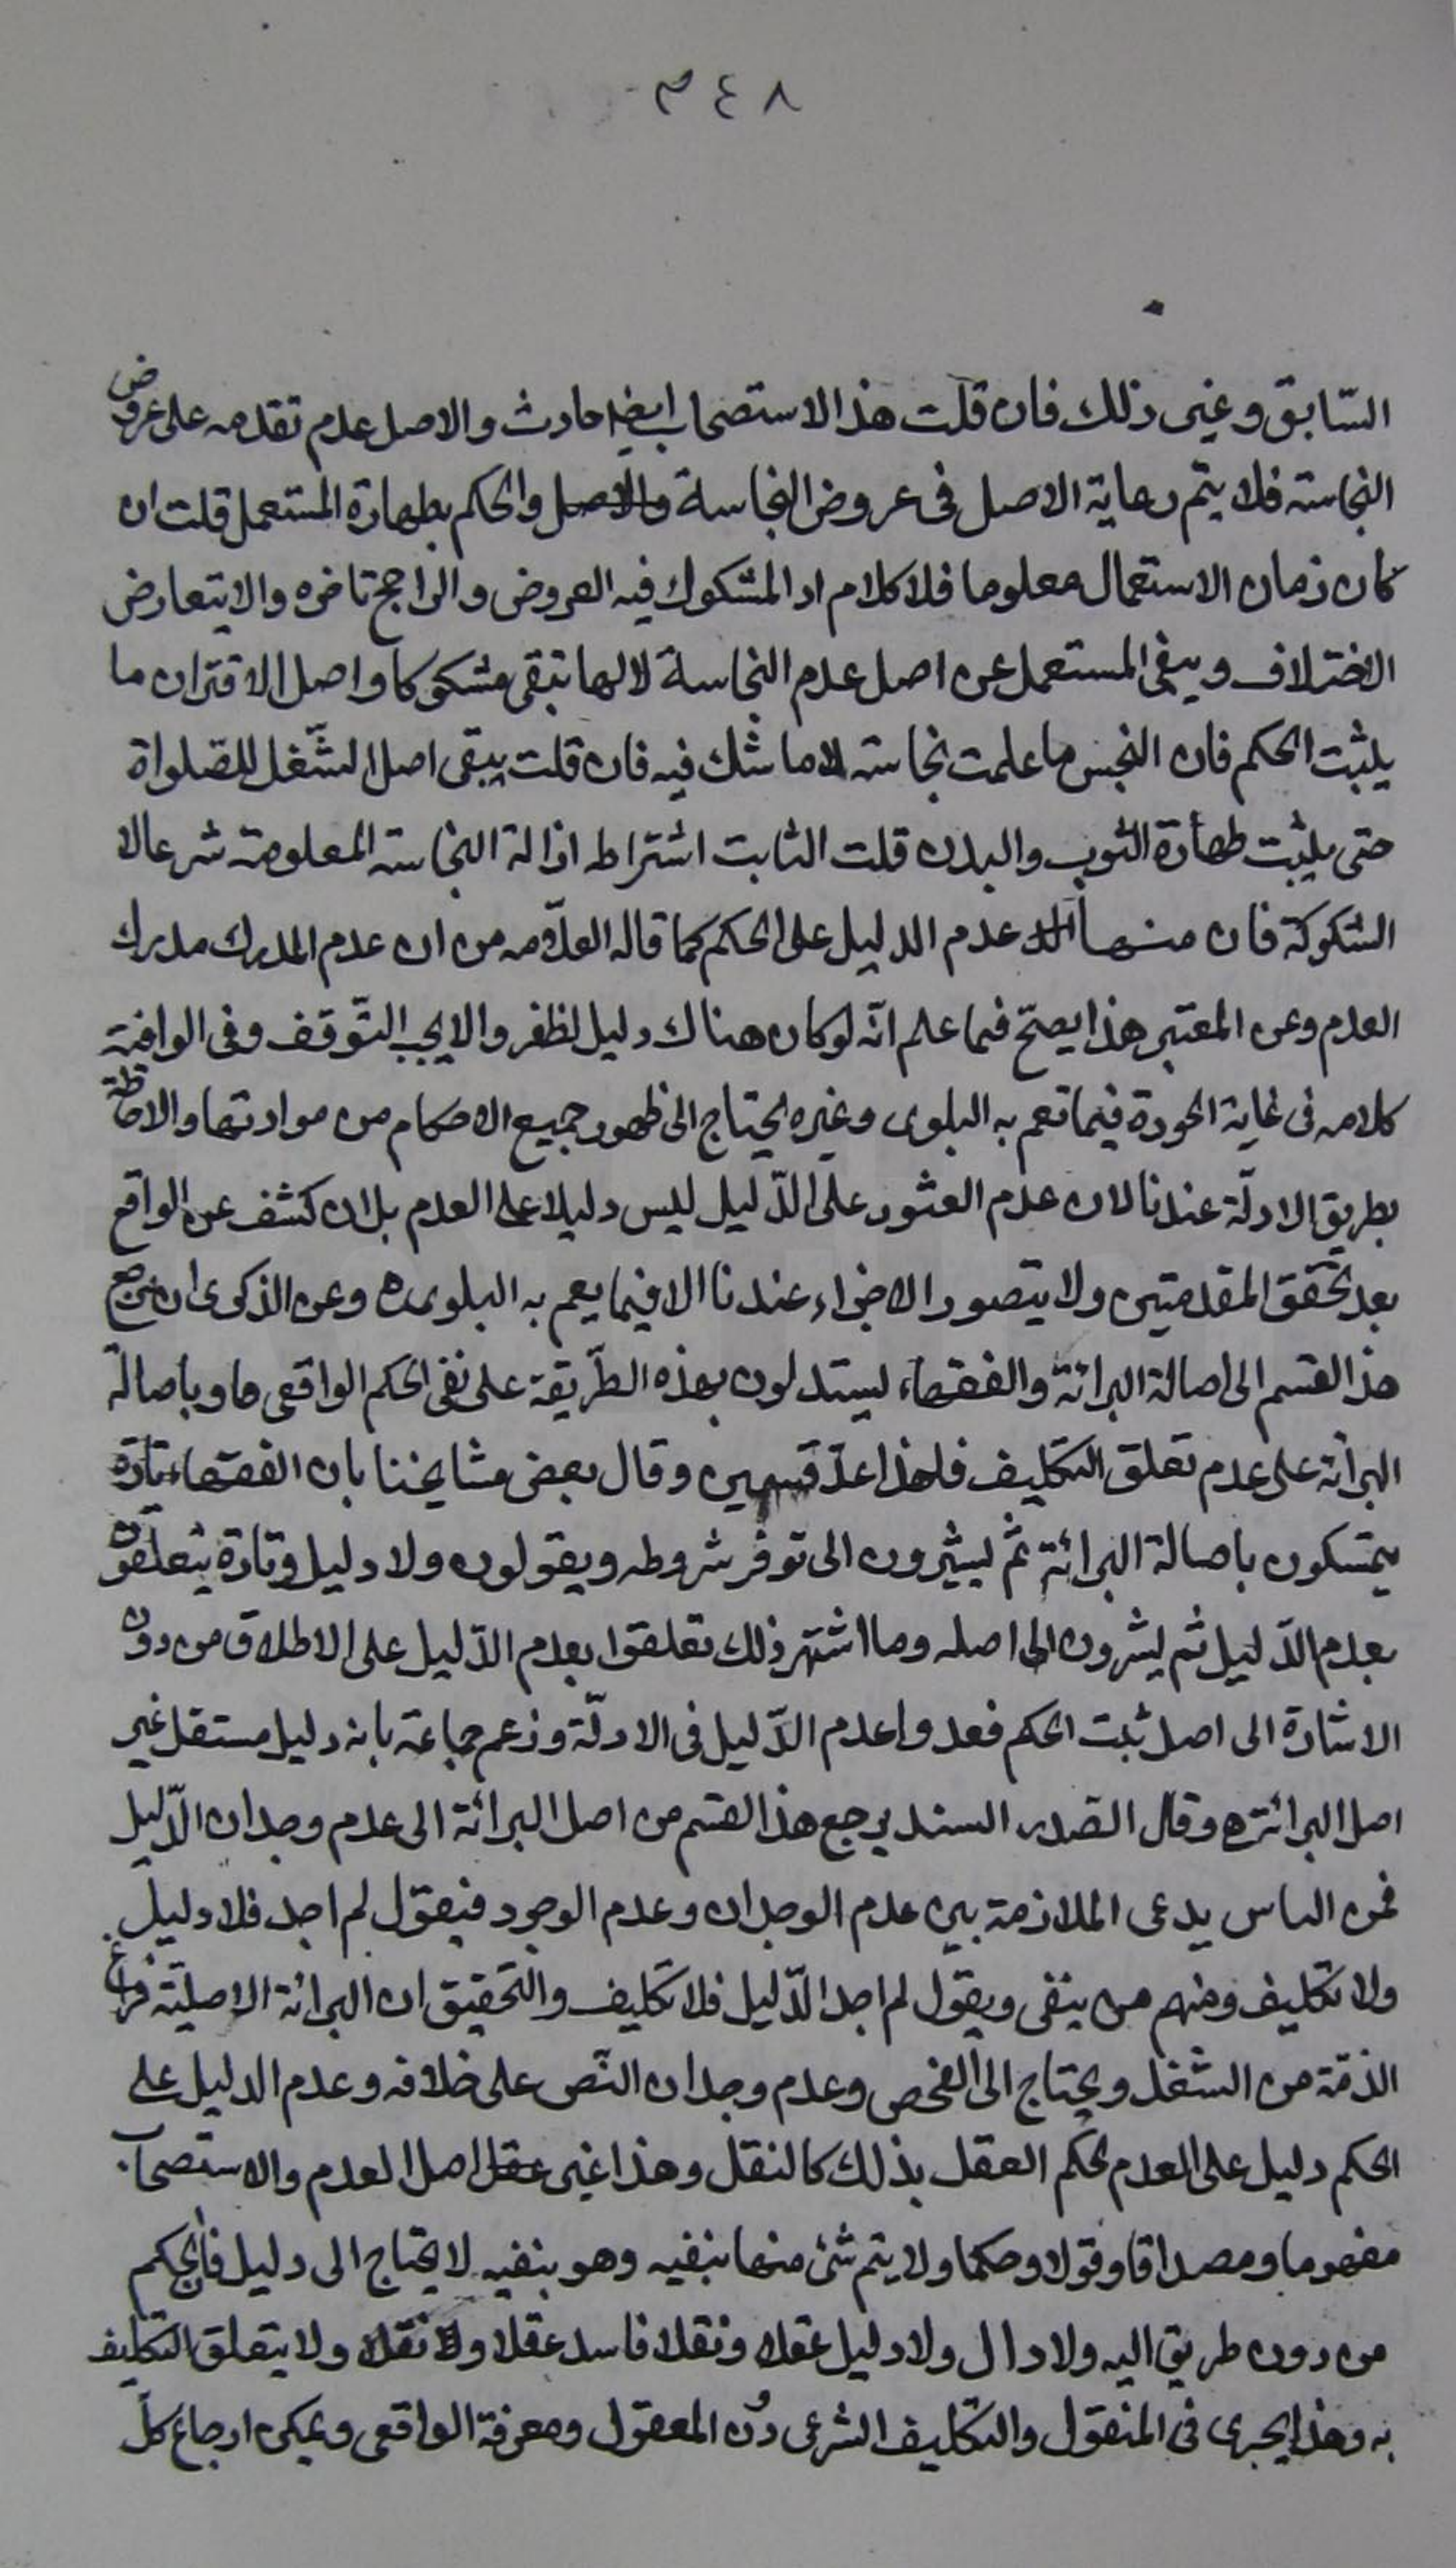 ٣٤٨
السّابق وغير ذلك فان قلت هذا الاستصحاب ايضا حادث والاصل عدم تقدمه على عروض
النجاسته فلا يتم رعاية الاصل فى عروض النجاسة والاصل والحكم بطهارة المستعمل قلت ان
كان زمان الاستعمال معلوما فلا كلام اذ المشكوك فيه العروض والراجح تاخره والا يتعارض
الاختلاف ويبقى المستعمل عن اصل عدم النجاسة لا لها تبقى مشكوكا واصل الاقتران ما
يثبت الحكم فان النجس ما علمت نجاسته لا ما شك فيه فان قلت يبقى اصل الشّغل للصّلواة
حتى يثبت طهارة الثوب والبدن قلت الثابت اشتراط ازالة النجاسته المعلومة شرعا لا
الشكوكة فان منها عدم الدليل على الحكم كما قاله العلّامه من ان عدم المدرك مدرك
العدم وعن المعتبر هذا يصحّ فيما علم انّه لو كان هناك دليل لظفر والا يجب التّوقف وفى الوافية
كلامه فى غاية الجودة فيما تعم به البلوى وغيره يحتاج الى ظهور جميع الاحكام من موادتها والاحاطة
بطريق الادلّة عندنا لان عدم العثور على الدّليل ليس دليلا على العدم بل ان كشف عن الواقع
بعد تحقق المقدمتين ولا يتصور الاخراء عندنا الا فيما يعم به البلوى ه وعن الذكرى ان مرجع
هذا القسم الى اصالة البرائة والفقهاء يستدلون بهذه الطّريقة على نفى الحكم الواقعى وباصالة
البرائة على عدم تعلق التكليف فلهذا عدّ قسمين وقال بعض مشايخنا بان الفقهاء تارة
يتمسكون باصالة البرائة ثمّ يشيرون الى توفر شروطه ويقولون ولا دليل وتارة يتعلّقون
بعدم الدّليل ثم يشرون الى اصله وما اشتهر ذلك تعلقوا بعدم الدّليل على الاطلاق من دون
الاشارة الى اصل ثبت الحكم فعدوا عدم الدّليل فى الادلّة وزعم جماعة بانه دليل مستقل غير
اصل البرائة ه وقال الصدر السند يرجع هذا القسم من اصل البرائة الى عدم وجدان الدّليل
فمن الناس يدعى الملازمة بين عدم الوجدان وعدم الوجود فيقول لم اجد فلا دليل
ولا تكليف ومنهم من ينفى ويقول لم اجد الدّليل فلا تكليف والتّحقيق ان البرائة الاصليّة فراغ
الذمّة من الشغل ويحتاج الى الفحص وعدم وجدان النّص على خلافه وعدم الدليل على
الحكم دليل على العدم لحكم العقل بذلك كالنقل وهذا غير عقل اصل العدم والاستصحاب
مفهوما ومصداقا وقولا وحكما ولا يتم شئ منها بنفيه وهو بنفيه لا يحتاج الى دليل فالحكم
من دون طريق اليه ولا دال ولا دليل عقلا ونقلا فاسد عقلا ولا نقلا ولا يتعلق التكليف
به وهذا يجرى فى المنقول والتكليف الشرعى دون المعقول ومعرفة الواقعى ويمكن ارجاع كلّ